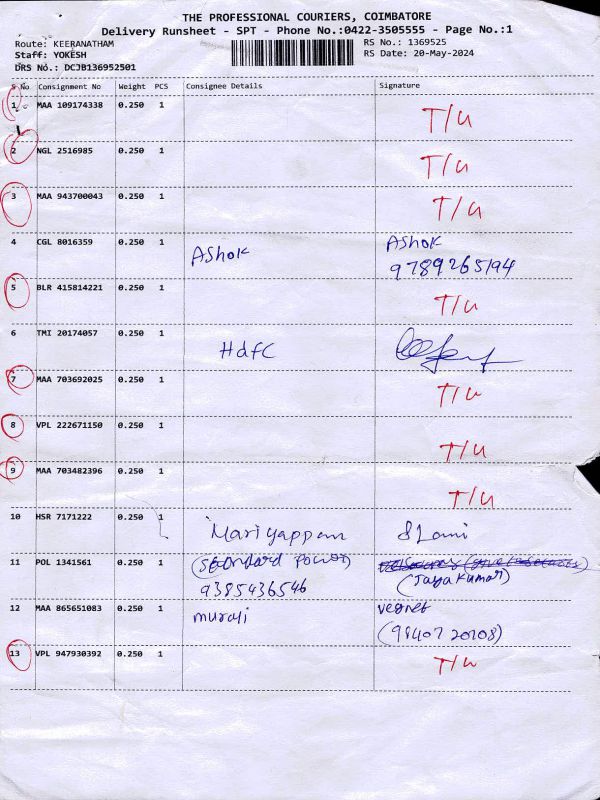 THE PROFESSIONAL COURIERS, COIMBATORE
Delivery Runsheet - SPT - Phone No.:0422-3505555 - Page No.:1
Route: KEERANATHAM RS No.: 1369525
Staff: YOKESH RS Date: 20-May-2024
DRS No.: DCJB136952501
S No Consignment No Weight PCS Consignee Details Signature
1 MAA 109174338 0.250 1 T/U
2 NGL 2516985 0.250 1 T/U
3 MAA 943700043 0.250 1 T/U
4 CGL 8016359 0.250 1 Ashok Ashok
9789265194
5 BLR 415814221 0.250 1 T/U
6 TMI 20174057 0.250 1 Hdfc
7 MAA 703692025 0.250 1 T/U
8 VPL 222671150 0.250 1 T/U
9 MAA 703482396 0.250 1 T/U
10 HSR 7171222 0.250 1 Mariyappan
11 POL 1341561 0.250 1 (Standard Power)
9385436546 (Jayakumar)
12 MAA 865651083 0.250 1 murali
(98407 20108)
13 VPL 947930392 0.250 1 T/U